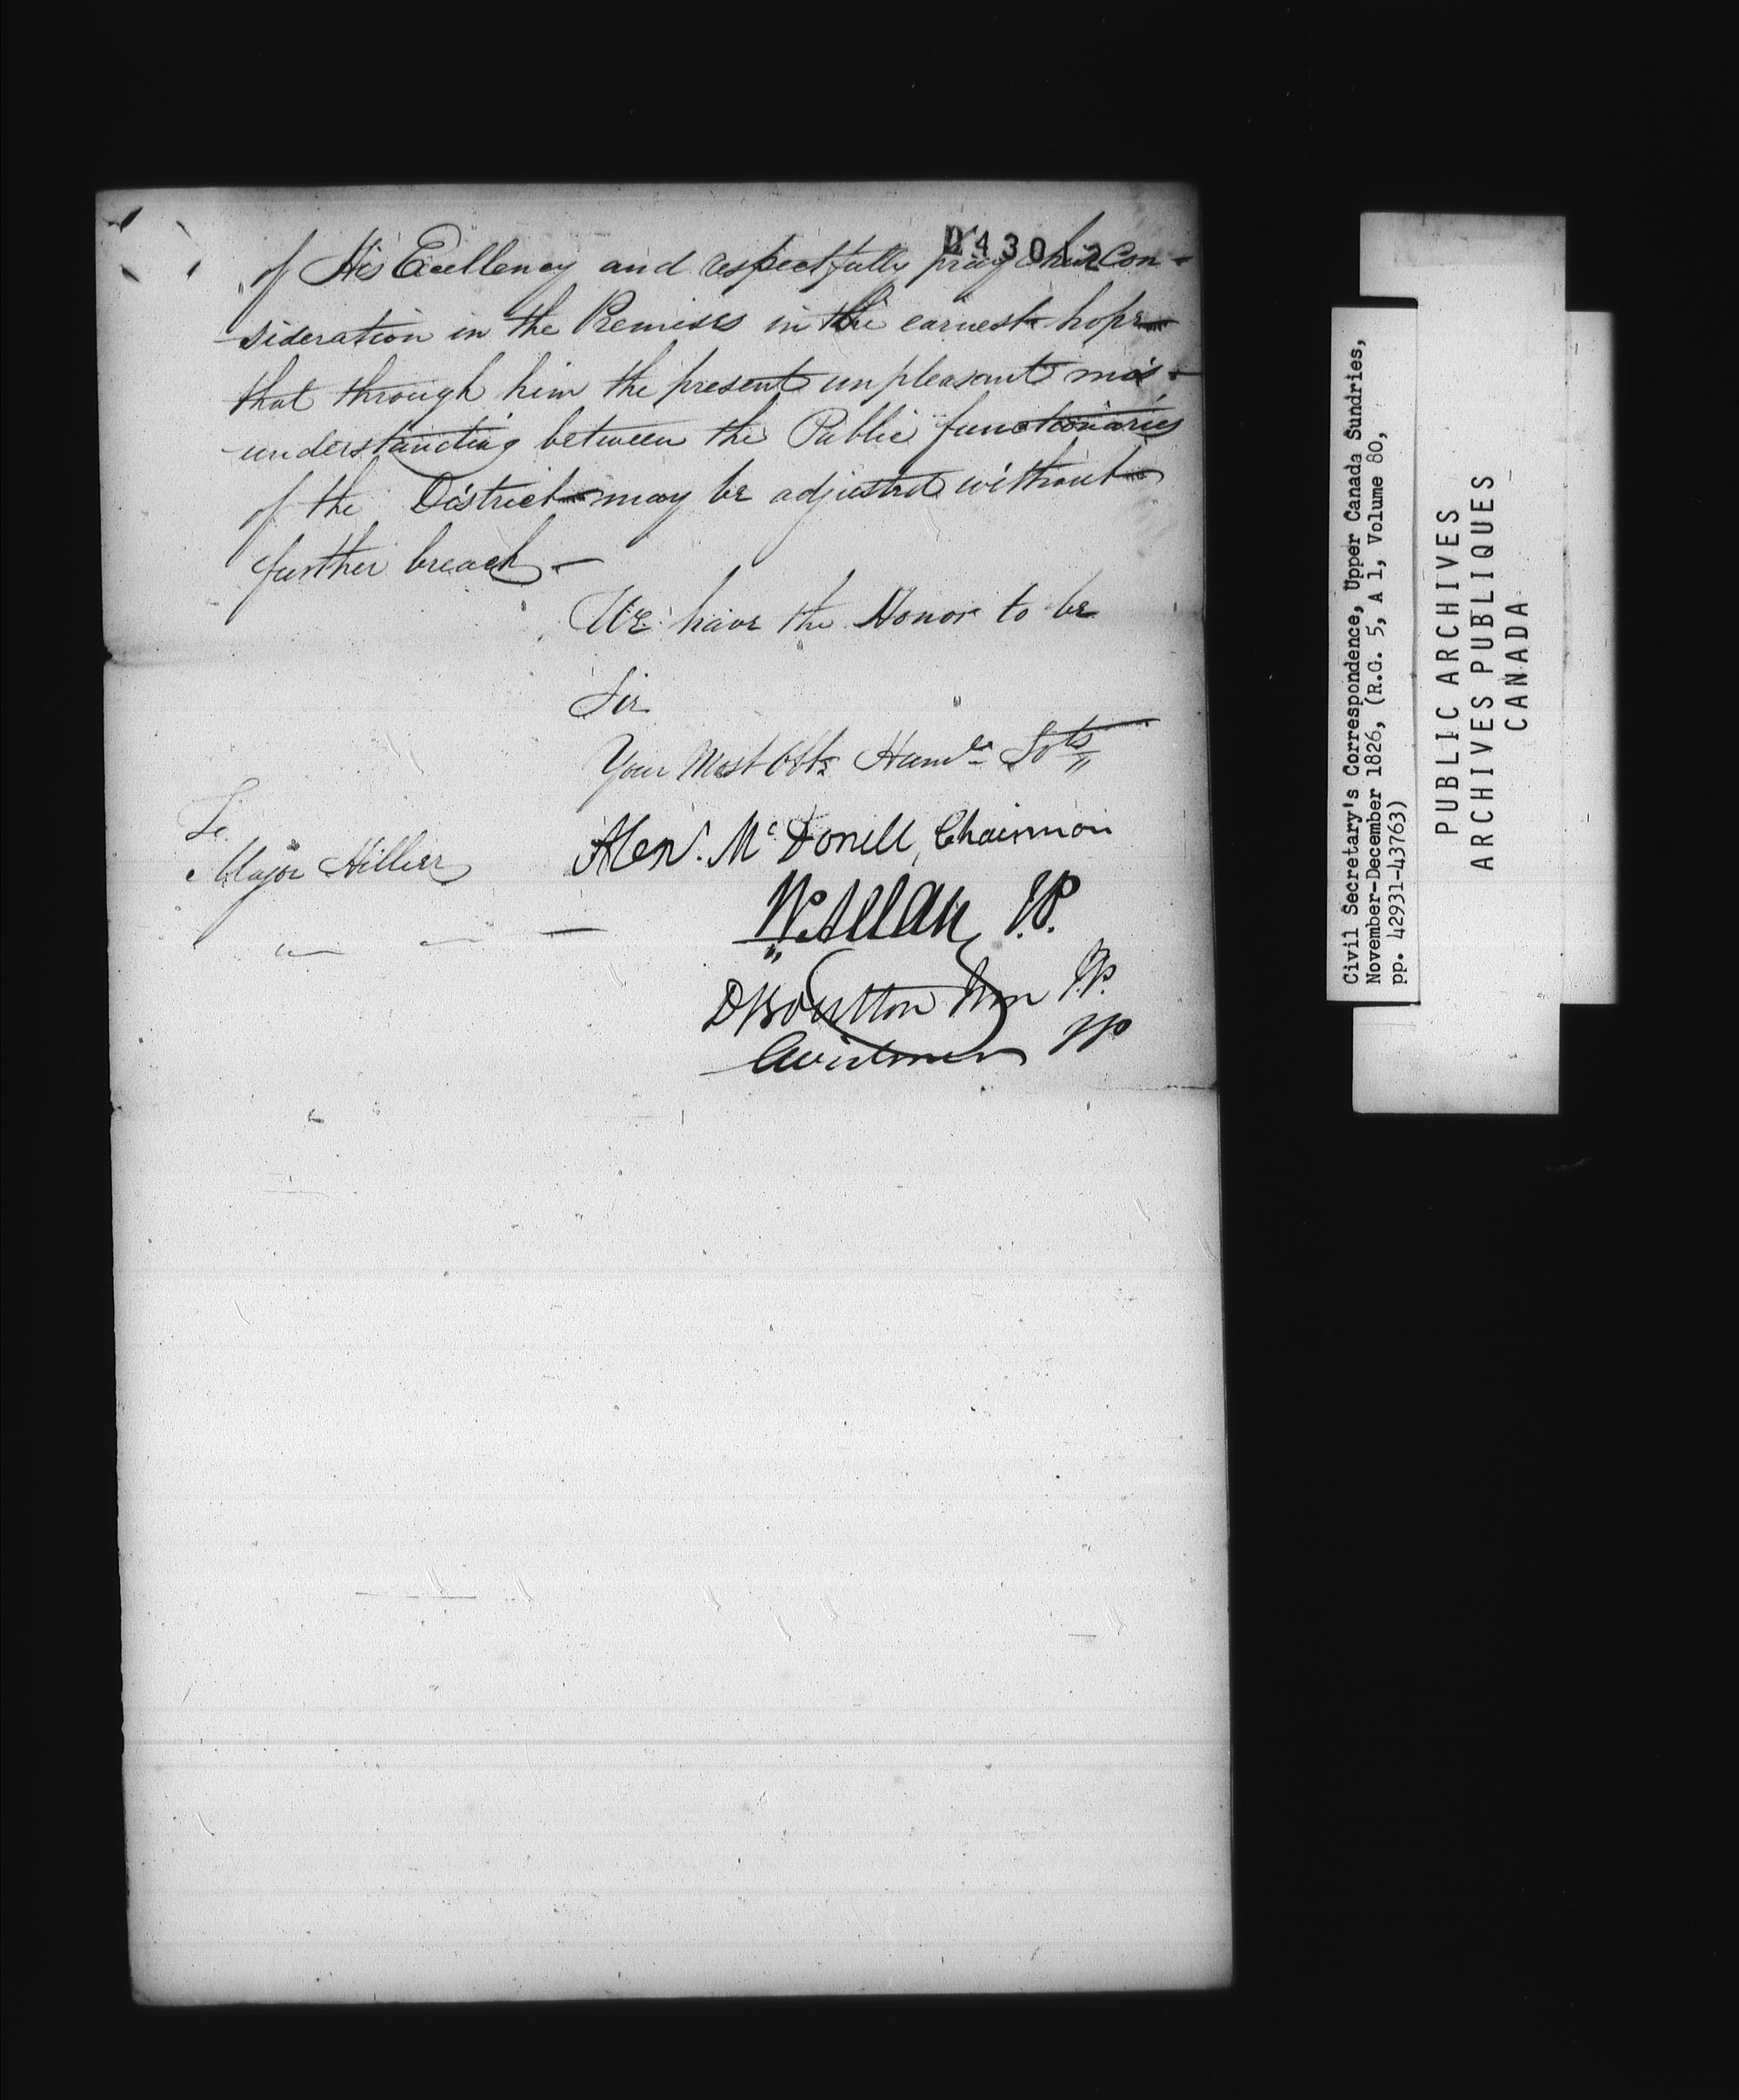 043012
of His Excellency and respectfully pray his Con-
sideration in the Premises in the earnest hope
that through him the present unpleasant mis-
understanding between the Public functionaries
of the District may be adjusted without
further breach.—
We have the Honor to be
Sir
Your Most Obt. Humle Svts
To
Major Hillier
Alexr. McDonell, Chairman
W. Allan, J.P.
D Boulton Jun J.P.
JP
Civil Secretary's Correspondence, Upper Canada Sundries,
November-December 1826, (R.G. 5, A 1, Volume 80,
pp. 42931-43763)
PUBLIC ARCHIVES
ARCHIVES PUBLIQUES
CANADA